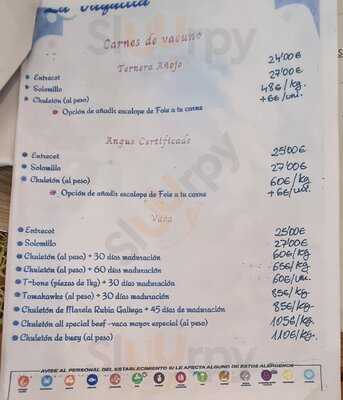 La Vaquilla
Carnes de vacuno
Ternera Añojo
Entrecot 24'00€
Solomillo 27'00€
Chuletón (al peso) 48€/kg.
Opción de añadir escalope de Foie a tu carne +6€/uni.
Angus Certificado
Entrecot 25'00€
Solomillo 27'00€
Chuletón (al peso) 60€/kg.
Opción de añadir escalope de Foie a tu carne +6€/uni.
Vaca
Entrecot 25'00€
Solomillo 27'00€
Chuletón (al peso) + 30 días maduración 60€/kg
Chuletón (al peso) + 60 días maduración 65€/kg.
T-bone (piezas de 1kg) + 30 días maduración 60€/un.
Tomahawks (al peso) + 30 días maduración 85€/kg.
Chuletón de Marela Rubia Gallega + 45 días de maduración 85€/kg.
Chuletón all special beef -vaca mayor especial (al peso) 105€/kg.
Chuletón de buey (al peso) 110€/kg.
AVISE AL PERSONAL DEL ESTABLECIMIENTO SI LE AFECTA ALGUNO DE ESTOS ALÉRGENOS
sluurpy